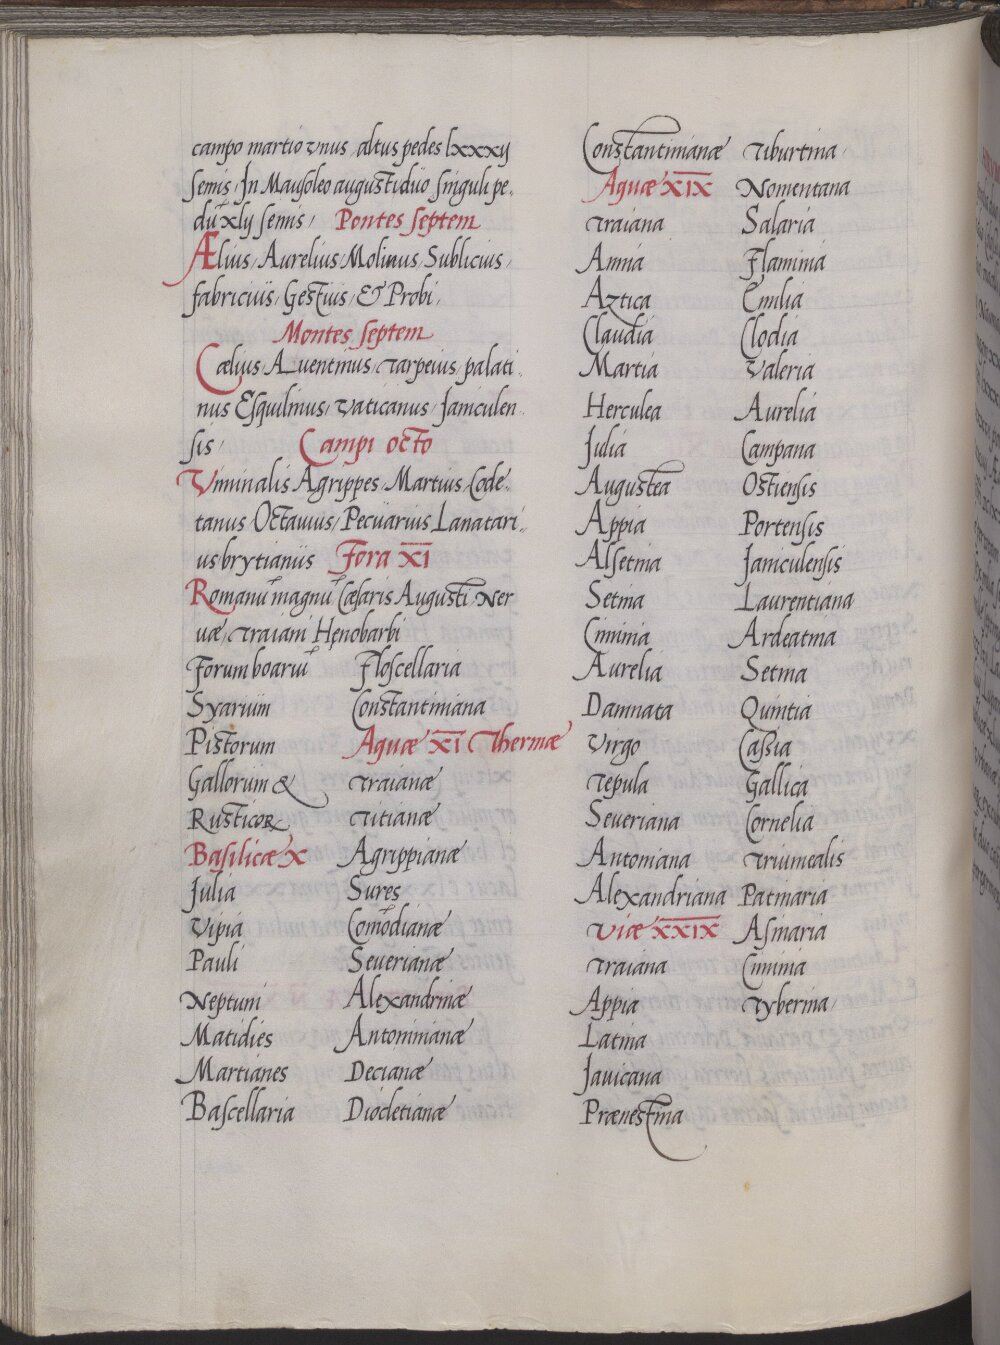 campo martio vnus, altus pedes lxxxij
semis, In Mausoleo augusti duo singuli pe.
dũ xlij semis, Pontes septem
Ælius, Aurelius, Molinus, Sublicius,
fabricius, Gestius, & Probi,
Montes septem
Cælius, Auentinus, tarpeius, palati.
nus Esquilinus, vaticanus, Janiculen.
sis, Campi octo
Viminalis Agrippes, Martius Code.
tanus Octauius, Pecuarius Lanatari.
us brytianus Fora XI
Romanũ magnũ Cæsaris Augusti, Ner
uæ, traiani Henobarbi
Forum boariũ
Syarium
Pistorum
Gallorum &
Rusticoꝝ
Basilicæ X
Julia
Vipia
Pauli
Neptuni
Matidies
Martianes
Bascellaria
Floscellaria
Constantiniana
Aquæ XI Thermæ
Traianæ
Titianæ
Agrippianæ
Sures
Comõdianæ
Seuerianæ
Alexandrinæ
Antoninianæ
Decianæ
Diocletianæ
Constantinianæ
Aquæ XIX
Traiana
Annia
Aztica
Claudia
Martia
Herculea
Julia
Augustea
Appia
Alsetina
Setina
Ciminia
Aurelia
Damnata
Virgo
Tepula
Seueriana
Antoniana
Alexandriana
Viæ XXIX
Traiana
Appia
Latina
Lauicana
Prænestina
Tiburtina,
Nomentana
Salaria
Flaminia
Emilia
Clodia
Valeria
Aurelia
Campana
Ostiensis
Portensis
Janiculensis
Laurentiana
Ardeatina
Setina
Quintia
Cassia
Gallica
Cornelia
Triumealis
Patinaria
Asinaria
Ciminia
Tyberina,